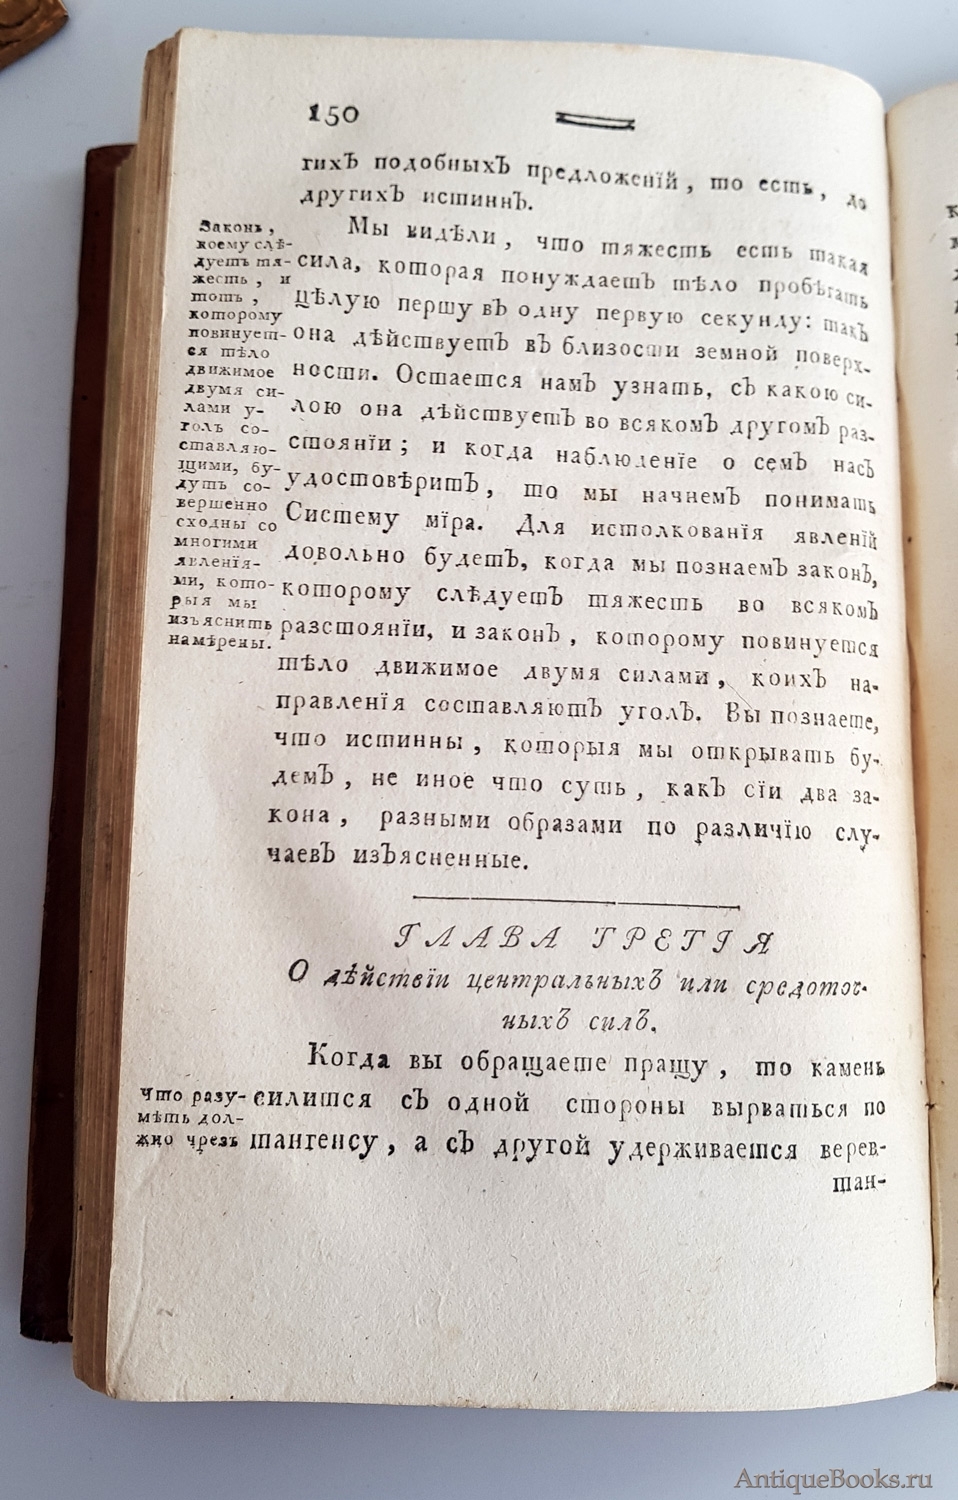 150
гихЪ подобныхЪ предложенїй, то есть, до
другихЪ истиннЪ.
Законъ,
коему слѣ-
дуетъ тя-
жесть, и
тотъ,
которому
повинует-
ся тѣло
движимое
двумя си-
лами у-
голъ со-
ставляю-
щими, бу-
дутъ со-
вершенно
сходны со
многими
явленїя-
ми, кото-
рыя мы
изъяснить
намѣрены.
Мы видѣли, что тяжесть есть такая
сила, которая понуждаетЪ тѣло пробѣгать
цѣлую першу вЪ одну первую секунду: такЪ
она дѣйствуетЪ вЪ близости земной поверх-
ности. Остается намЪ узнать, сЪ какою си-
лою она дѣйствуетЪ во всякомЪ другомЪ раз-
стоянїи; и когда наблюденїе о семЪ насЪ
удостовѣритЪ, то мы начнемЪ понимать
Систему мїра. Для истолкованїя явленїй
довольно будетЪ, когда мы познаемЪ законЪ,
которому слѣдуетЪ тяжесть во всякомЪ
разстоянїи, и законЪ, которому повинуется
тѣло движимое двумя силами, коихЪ на-
правленїя составляютЪ уголЪ. Вы познаете,
что истинны, которыя мы открывать бу-
демЪ, не иное что суть, какЪ сїи два за-
кона, разными образами по различїю слу-
чаевЪ изЪясненные.
ГЛАВА ТРЕТІЯ
О дѣйствїи центральныхЪ или средоточ-
ныхЪ силЪ.
Что разу-
мѣть дол-
жно чрезъ
Когда вы обращаете пращу, то камень
силится сЪ одной стороны вырваться по
тангенсу, а сЪ другой удерживается верев-
тан-
AntiqueBooks.ru